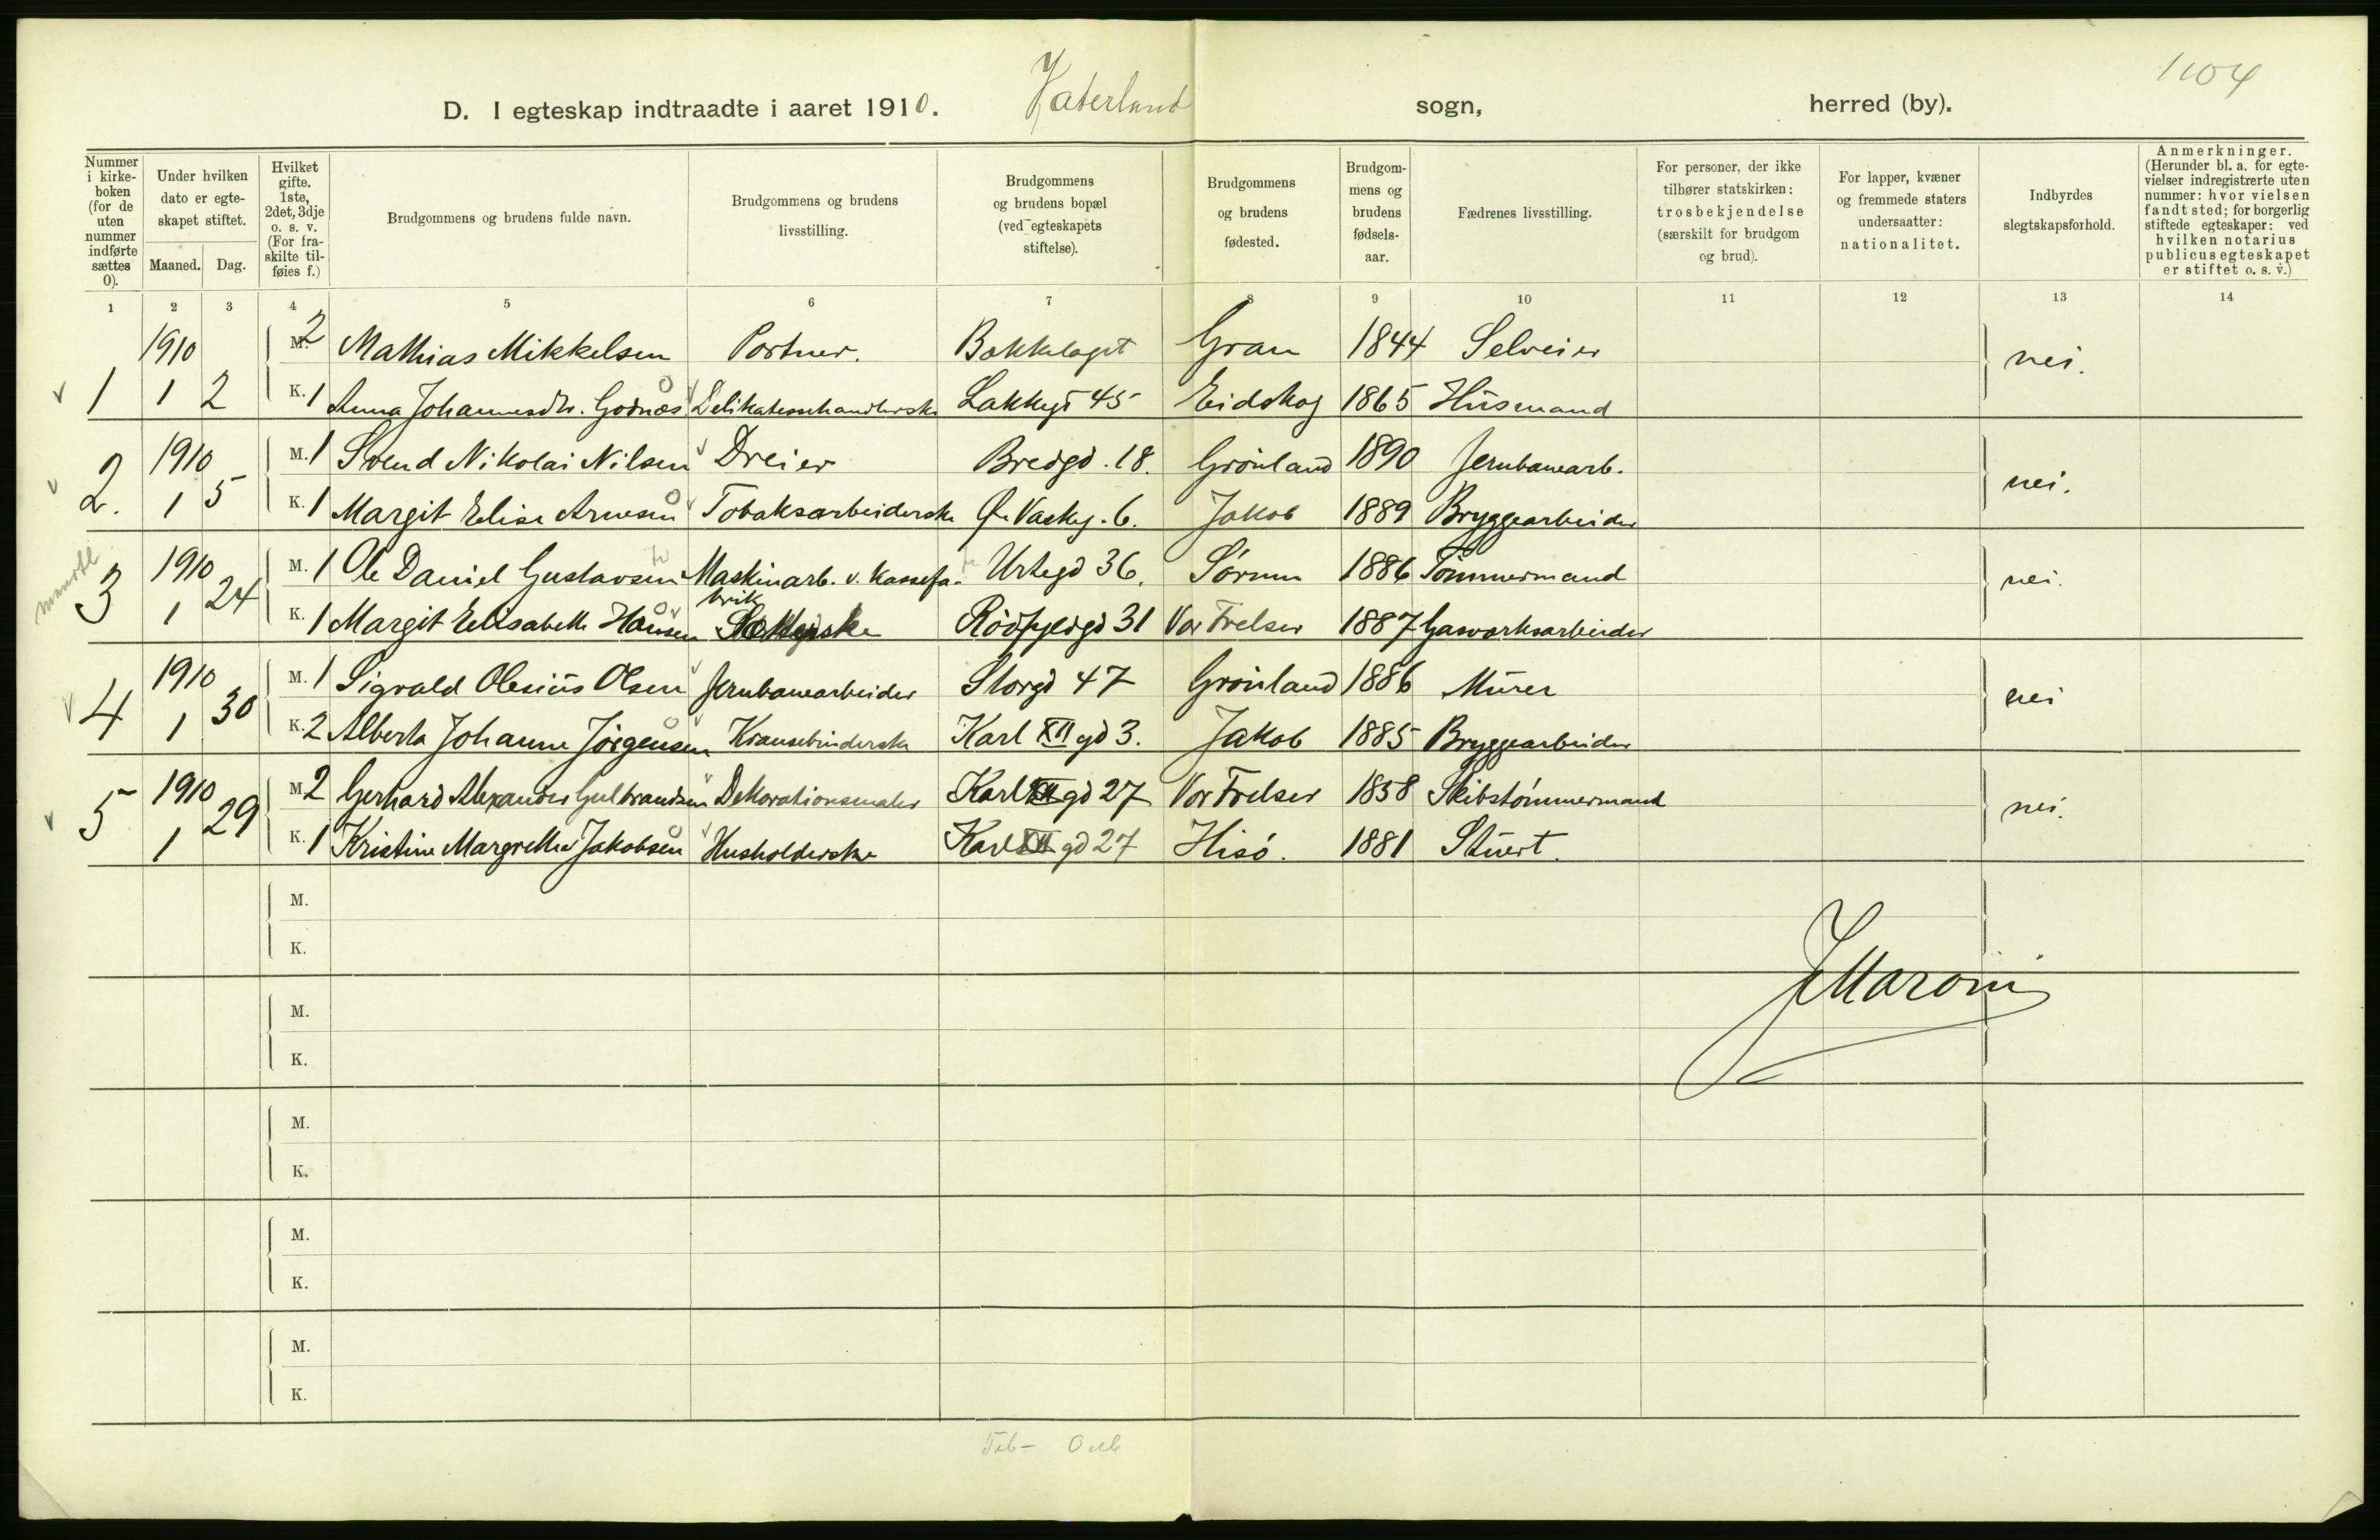 1104
D. I egteskap indtraadte i aaret 1910. Vaterland sogn, herred (by).
Nummer i kirkeboken (for de uten nummer indførte sættes 0).
Under hvilken dato er egteskapet stiftet.
Maaned. Dag.
Hvilket gifte. 1ste, 2det, 3dje o. s. v. (For fraskilte tilføies f.)
Brudgommens og brudens fulde navn.
Brudgommens og brudens livsstilling.
Brudgommens og brudens bopæl (ved egteskapets stiftelse).
Brudgommens og brudens fødested.
Brudgommens og brudens fødselsaar.
Fædrenes livsstilling.
For personer, der ikke tilhører statskirken: trosbekjendelse (særskilt for brudgom og brud).
For lapper, kvæner og fremmede staters undersaatter: nationalitet.
Indbyrdes slegtskapsforhold.
Anmerkninger. (Herunder bl. a. for egtevielser indregistrerte uten nummer: hvor vielsen fandt sted; for borgerlig stiftede egteskaper: ved hvilken notarius publicus egteskapet er stiftet o. s. v.)
1 2 3 4 5 6 7 8 9 10 11 12 13 14
1910 M. 2 Mathias Mikkelsen Portner. Bækkelaget Gran 1844 Selveier nei.
1 1 2 K. 1 Anna Johannesdtr. Godnæs Delikatessehandlerske Lakkegt 45 Eidskog 1865 Husmand
1910 M. 1 Svend Nikolai Nilsen Dreier Bredgd. 18. Grønland 1890 Jernbanearb. nei.
2. 1 5 K. 1 Margit Elise Arnesen Tobaksarbeiderske Ø. Vaskeg. 6. Jakob 1889 Bryggearbeider
1910 M. 1 Ole Daniel Gustavsen Maskinarb. v. Kassefabrik Urtegd 36. Sørum 1886 Tømmermand nei.
3 1 24 K. 1 Margit Elisabeth Hansen Rødfyldgd 31 Vor Frelser 1887 Gasværksarbeider
1910 M. 1 Sigvald Olesius Olsen Jernbanearbeider Storgd 47 Grønland 1886 Murer nei
4 1 30 K. 2 Alberta Johanne Jørgensen Kransebinderske Karl XII gd 3. Jakob 1885 Bryggearbeider
1910 M. 2 Gerhard Alexander Gulbrandsen Dekorationsmaler Karl XII gd 27 Vor Frelser 1858 Skibstømmermand nei.
5 1 29 K. 1 Kristine Margrethe Jakobsen Husholderske Karl XII gd 27 Hisø. 1881 Stuert.
M.
K.
JMaroni
M.
K.
M.
K.
M.
K.
M.
K.
Feb-